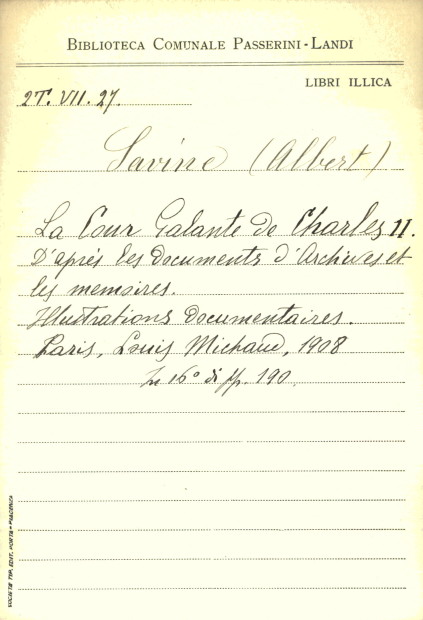 BIBLIOTECA COMUNALE PASSERINI-LANDI
LIBRI ILLICA
2T. VII. 27.
Savine (Albert)
La Cour Galante de Charles II.
D'après les documents d'Archives et
les memoires.
Illustrations documentaires.
Paris, Louis Michaud, 1908
In 16° di pp. 190.
SOCIETÀ TIP. EDIT. PORTA - PIACENZA